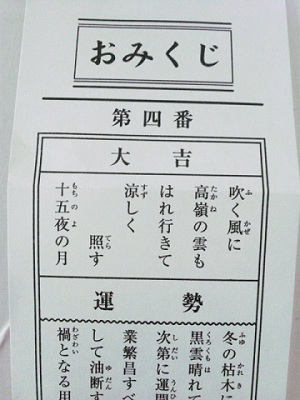 おみくじ
第四番
大吉
吹く風に
高嶺の雲も
はれ行きて
涼しく
照す
十五夜の月
運勢
冬の枯木に
黒雲晴れて
次第に運開
業繁昌すべ
して油断す
禍となる用